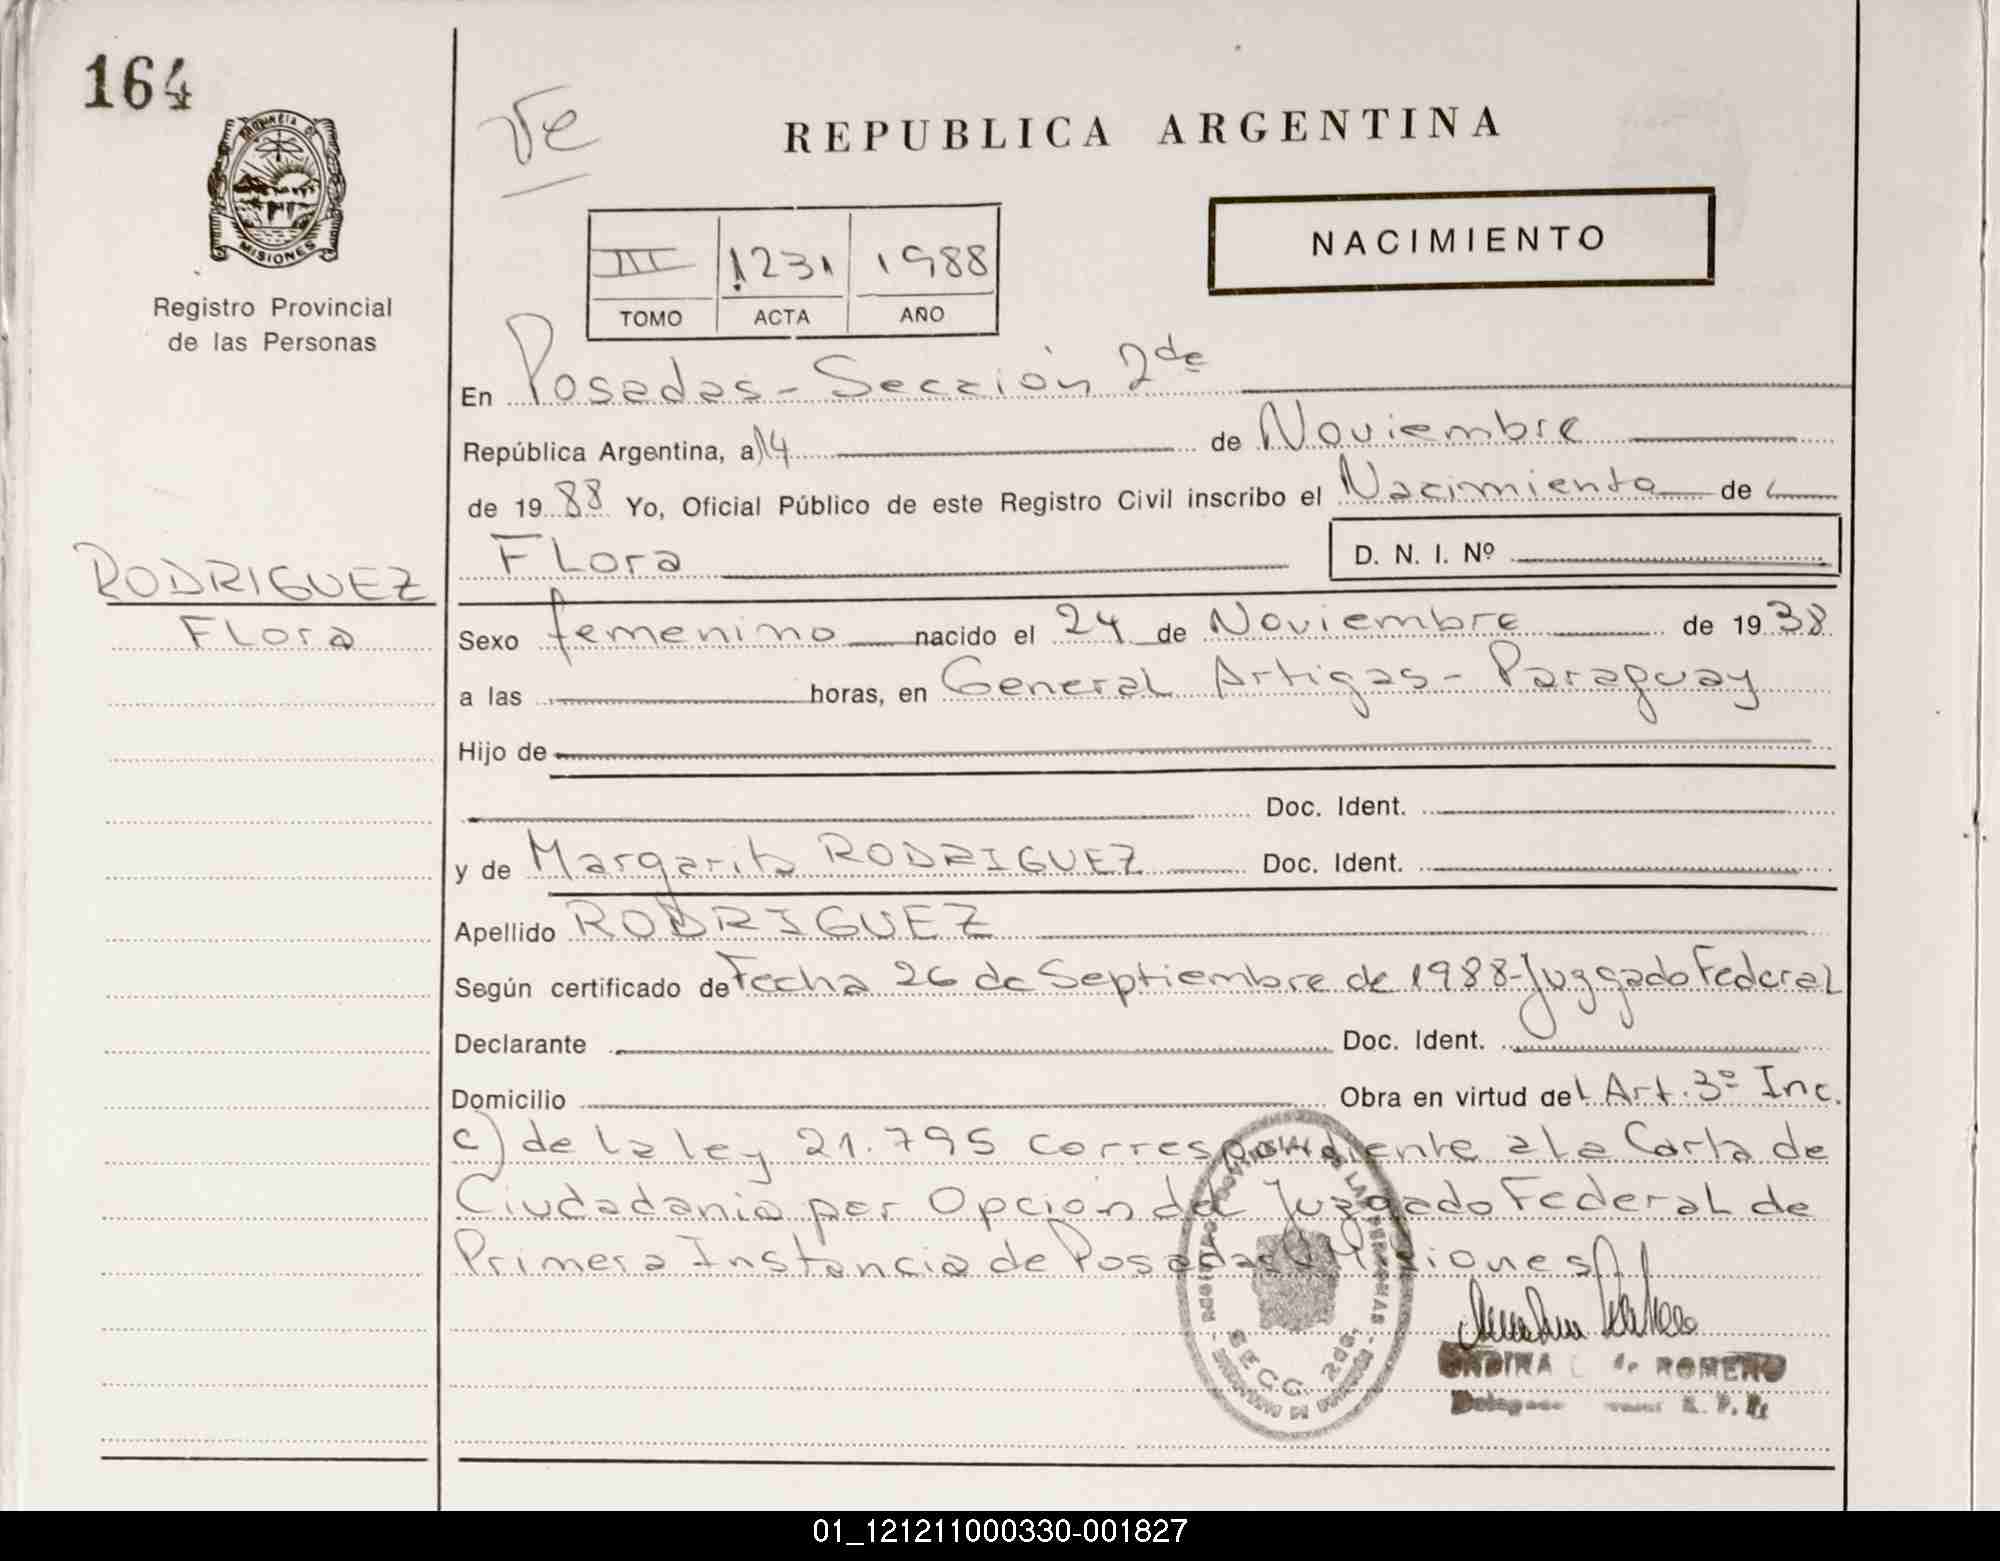 164
PROVINCIA DE
MISIONES
Registro Provincial
de las Personas
REPUBLICA ARGENTINA
NACIMIENTO
III 1231 1988
TOMO ACTA AÑO
En Posadas - Sección 2da
República Argentina, a 14 de Noviembre
de 19 88 Yo, Oficial Público de este Registro Civil inscribo el Nacimiento de
Flora D. N. I. Nº
RODRIGUEZ
Flora
Sexo femenino nacido el 24 de Noviembre de 19 38
a las horas, en General Artigas - Paraguay
Hijo de
Doc. Ident.
y de Margarita RODRIGUEZ Doc. Ident.
Apellido RODRIGUEZ
Según certificado de Fecha 26 de Septiembre de 1988 - Juzgado Federal
Declarante Doc. Ident.
Domicilio Obra en virtud del Art. 3º Inc.
c) de la ley 21.795 correspondiente a la Carta de
Ciudadania por Opción del Juzgado Federal de
Primera Instancia de Posadas Misiones
SECC. 2da.
de ROMERO
01_121211000330-001827